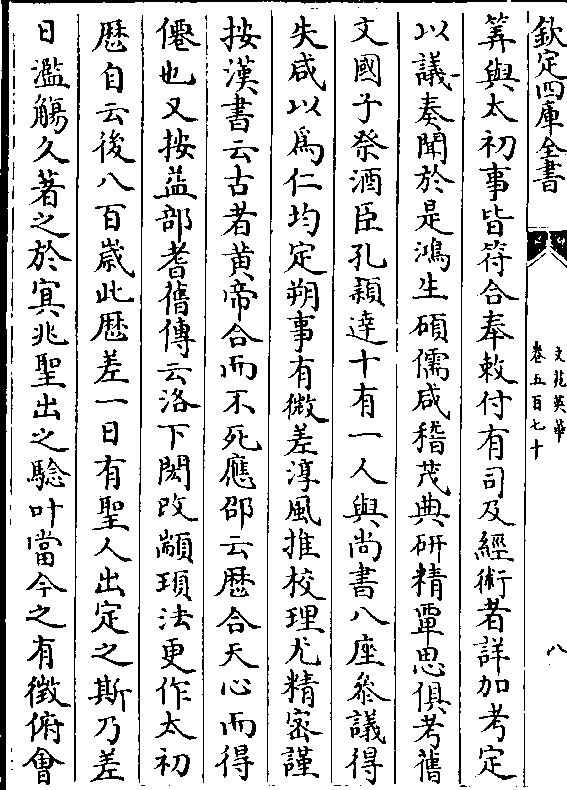 欽定四庫全書
文苑英華
卷五百七十
八
筭與太初事皆符合奉敕付有司及經術者詳加考定
以議奏聞於是鴻生碩儒咸稽茂典研精覃思俱考舊
文國子祭酒臣孔頴逹十有一人與尚書八座參議得
失咸以爲仁均定朔事有微差淳風推校理尤精宻謹
按漢書云古者黄帝合而不死應邵云歴合天心而得
僊也又按益部耆舊傳云洛下閎改顓頊法更作太初
歴自云後八百嵗此歴差一日有聖人出定之斯乃差
日濫觴久著之於㝠兆聖出之驗叶當今之有徵俯會